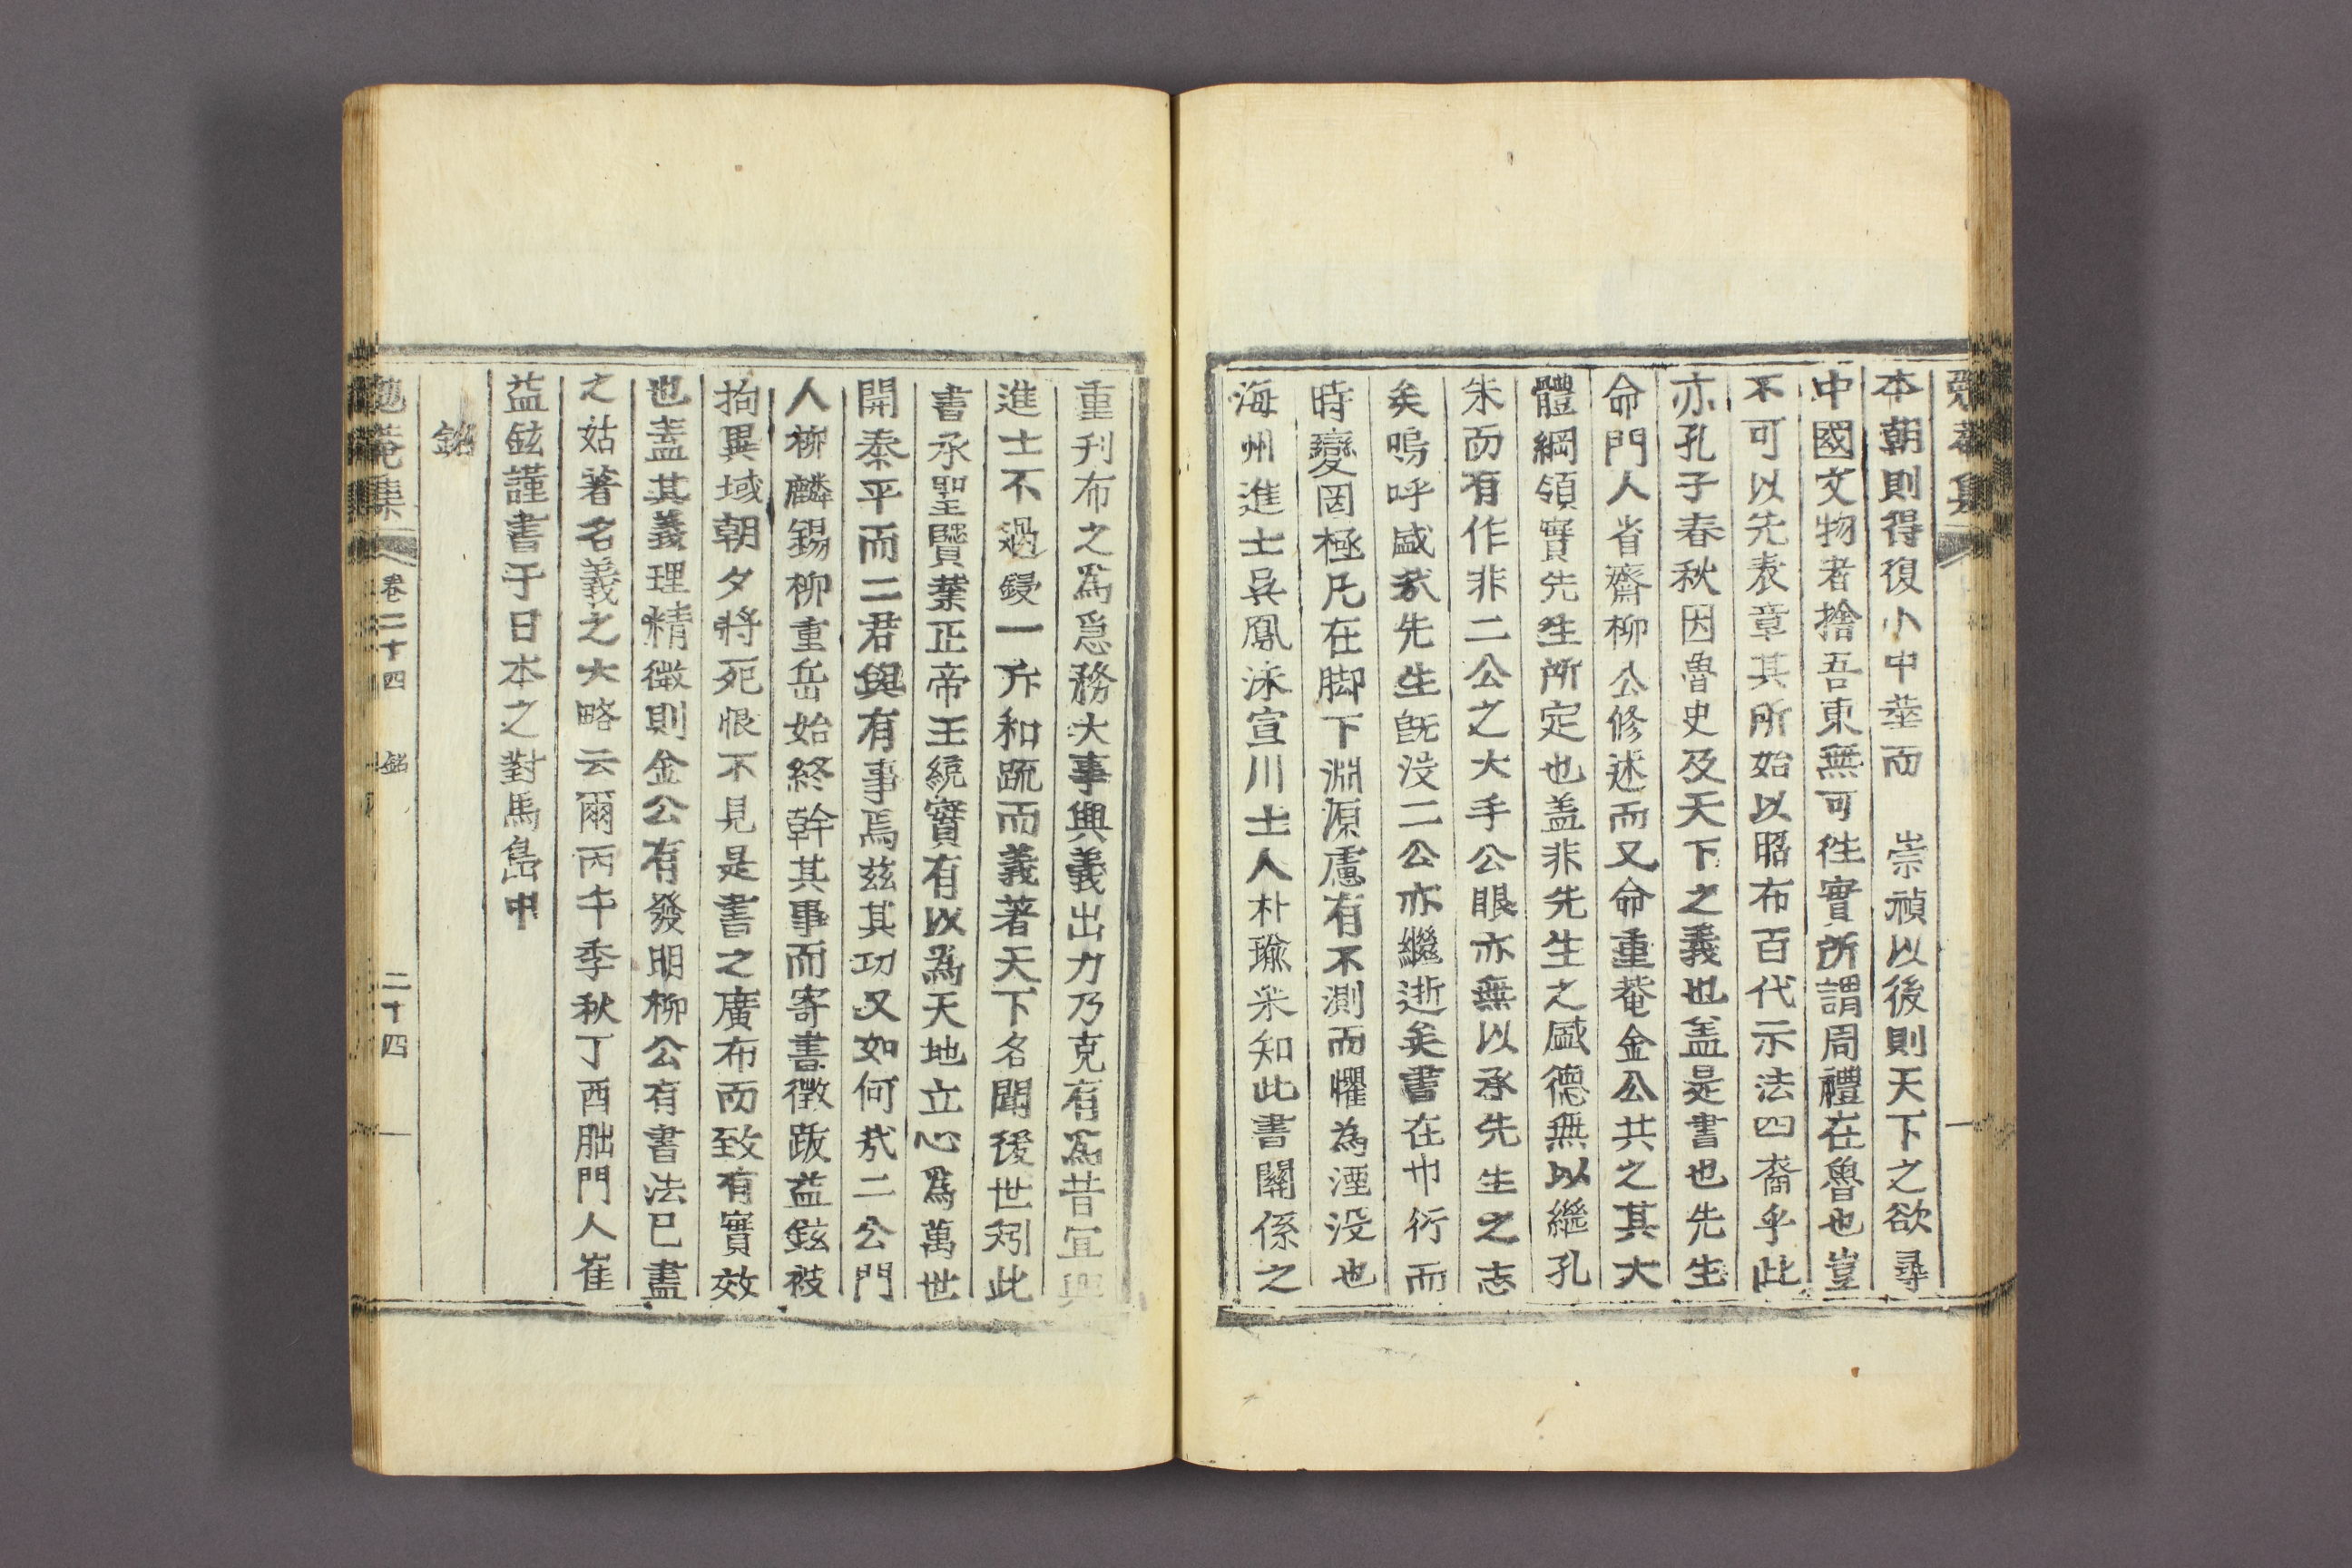 本朝則得復小中華而 崇禎以後則天下之欲尋
中國文物者捨吾東無可徃實所謂周禮在魯也豈
不可以先表章其所始以昭布百代示法四裔乎此
亦孔子春秋因魯史及天下之義也盖是書也先生
命門人省齋柳公修述而又命重菴金公共之其大
體綱領實先生所定也盖非先生之盛德無以繼孔
朱而有作非二公之大手公眼亦無以承先生之志
矣嗚呼盛哉先生旣沒二公亦繼逝矣書在巾衍而
時變罔極凡在脚下淵源慮有不測而懼為湮沒也
海州進士吳鳳泳宣川士人朴瑜釆知此書關係之
重刋布之爲急務大事興義出力乃克有爲昔宜興
進士不過鋟一斥和䟽而義著天下名聞後世矧此
書承聖賢業正帝王統實有以為天地立心爲萬世
開泰平而二君與有事焉玆其功又如何哉二公門
人柳麟錫柳重岳始終幹其事而寄書徵跋益鉉被
拘異域朝夕將死恨不見是書之廣布而致有實效
也盖其義理精微則金公有發明柳公有書法已盡
之姑著名義之大略云爾丙午季秋丁酉朏門人崔
益鉉謹書于日本之對馬島中
銘
勉菴集 卷二十四 銘 二十四